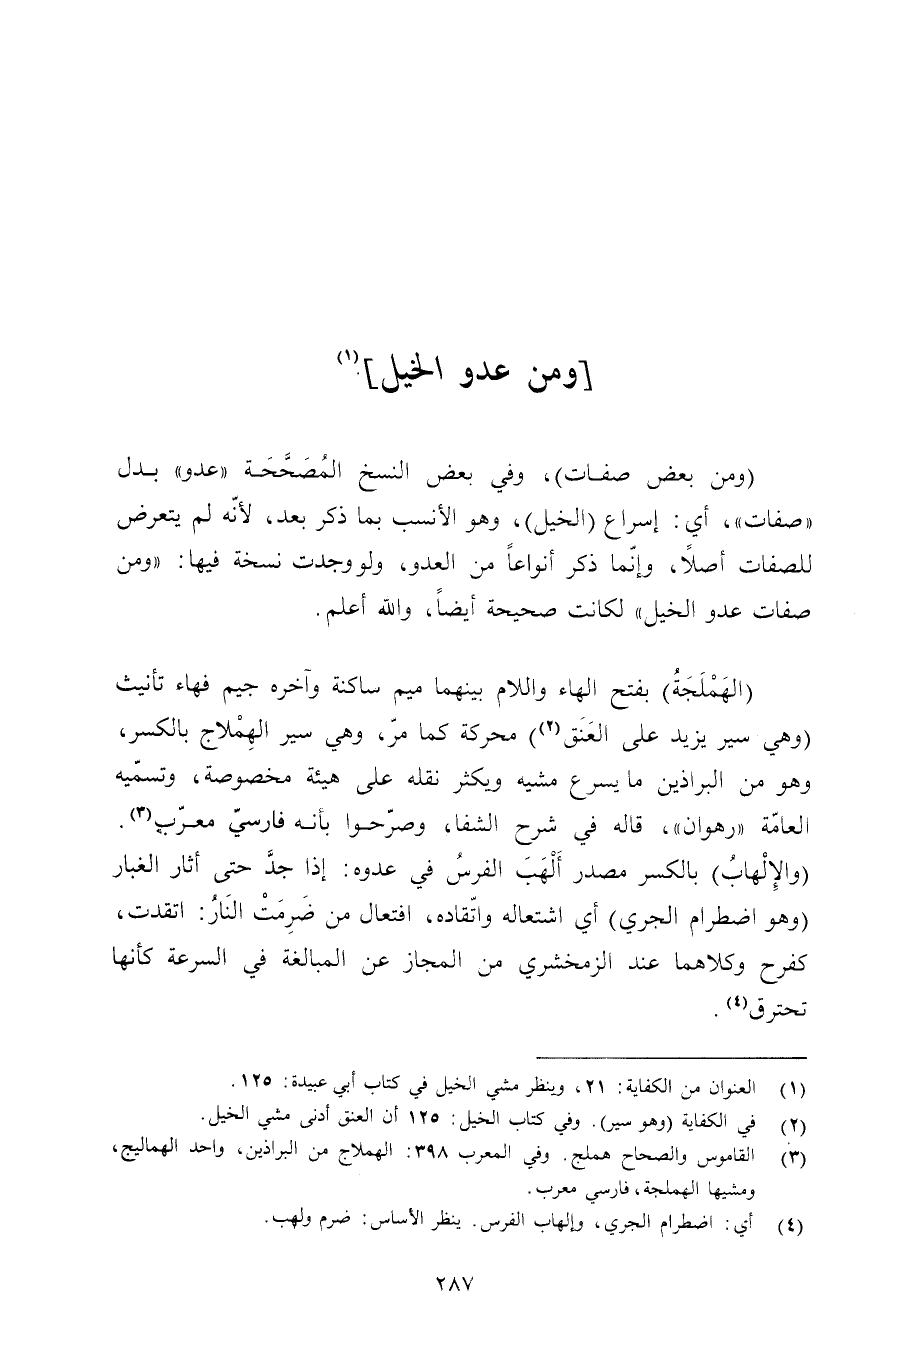 [ومن عدو الخيل].(١)
(ومن بعض صفـات)، وفي بعض النسخ المُصَحَّحَـة «عدو» بـدل
«صفات»، أي: إسراع (الخيل)، وهو الأنسب بما ذكر بعد، لأنّه لم يتعرض
للصفات أصلًا، وإنّما ذكر أنواعاً من العدو، ولو وجدت نسخة فيها: «ومن
صفات عدو الخيل» لكانت صحيحة أيضاً، والله أعلم.
(الهَمْلَجَةُ) بفتح الهاء واللام بينهما ميم ساكنة وآخره جيم فهاء تأنيث
(وهي سير يزيد على العَنَق(٢)) محركة كما مرّ، وهي سير الهِمْلاج بالكسر،
وهو من البراذين ما يسرع مشيه ويكثر نقله على هيئة مخصوصة، وتسمّيه
العامّة «رهوان»، قاله في شرح الشفا، وصرّحـوا بأنـه فارسيّ معـرّب(٣).
(والإِلْهابُ) بالكسر مصدر أَلْهَبَ الفرسُ في عدوه: إذا جدَّ حتى أثار الغبار
(وهو اضطرام الجري) أي اشتعاله واتّقاده، افتعال من ضَرِمَتْ النَارُ: اتقدت،
كفرح وكلاهما عند الزمخشري من المجاز عن المبالغة في السرعة كأنها
تحترق(٤).
(١) العنوان من الكفاية: ٢١، وينظر مشي الخيل في كتاب أبي عبيدة: ١٢٥.
(٢) في الكفاية (وهو سير). وفي كتاب الخيل: ١٢٥ أن العنق أدنى مشي الخيل.
(٣) القاموس والصحاح هملج. وفي المعرب ٣٩٨: الهملاج من البراذين، واحد الهماليج،
ومشيها الهملجة، فارسي معرب.
(٤) أي: اضطرام الجري، وإلهاب الفرس. ينظر الأساس: ضرم ولهب.
٢٨٧